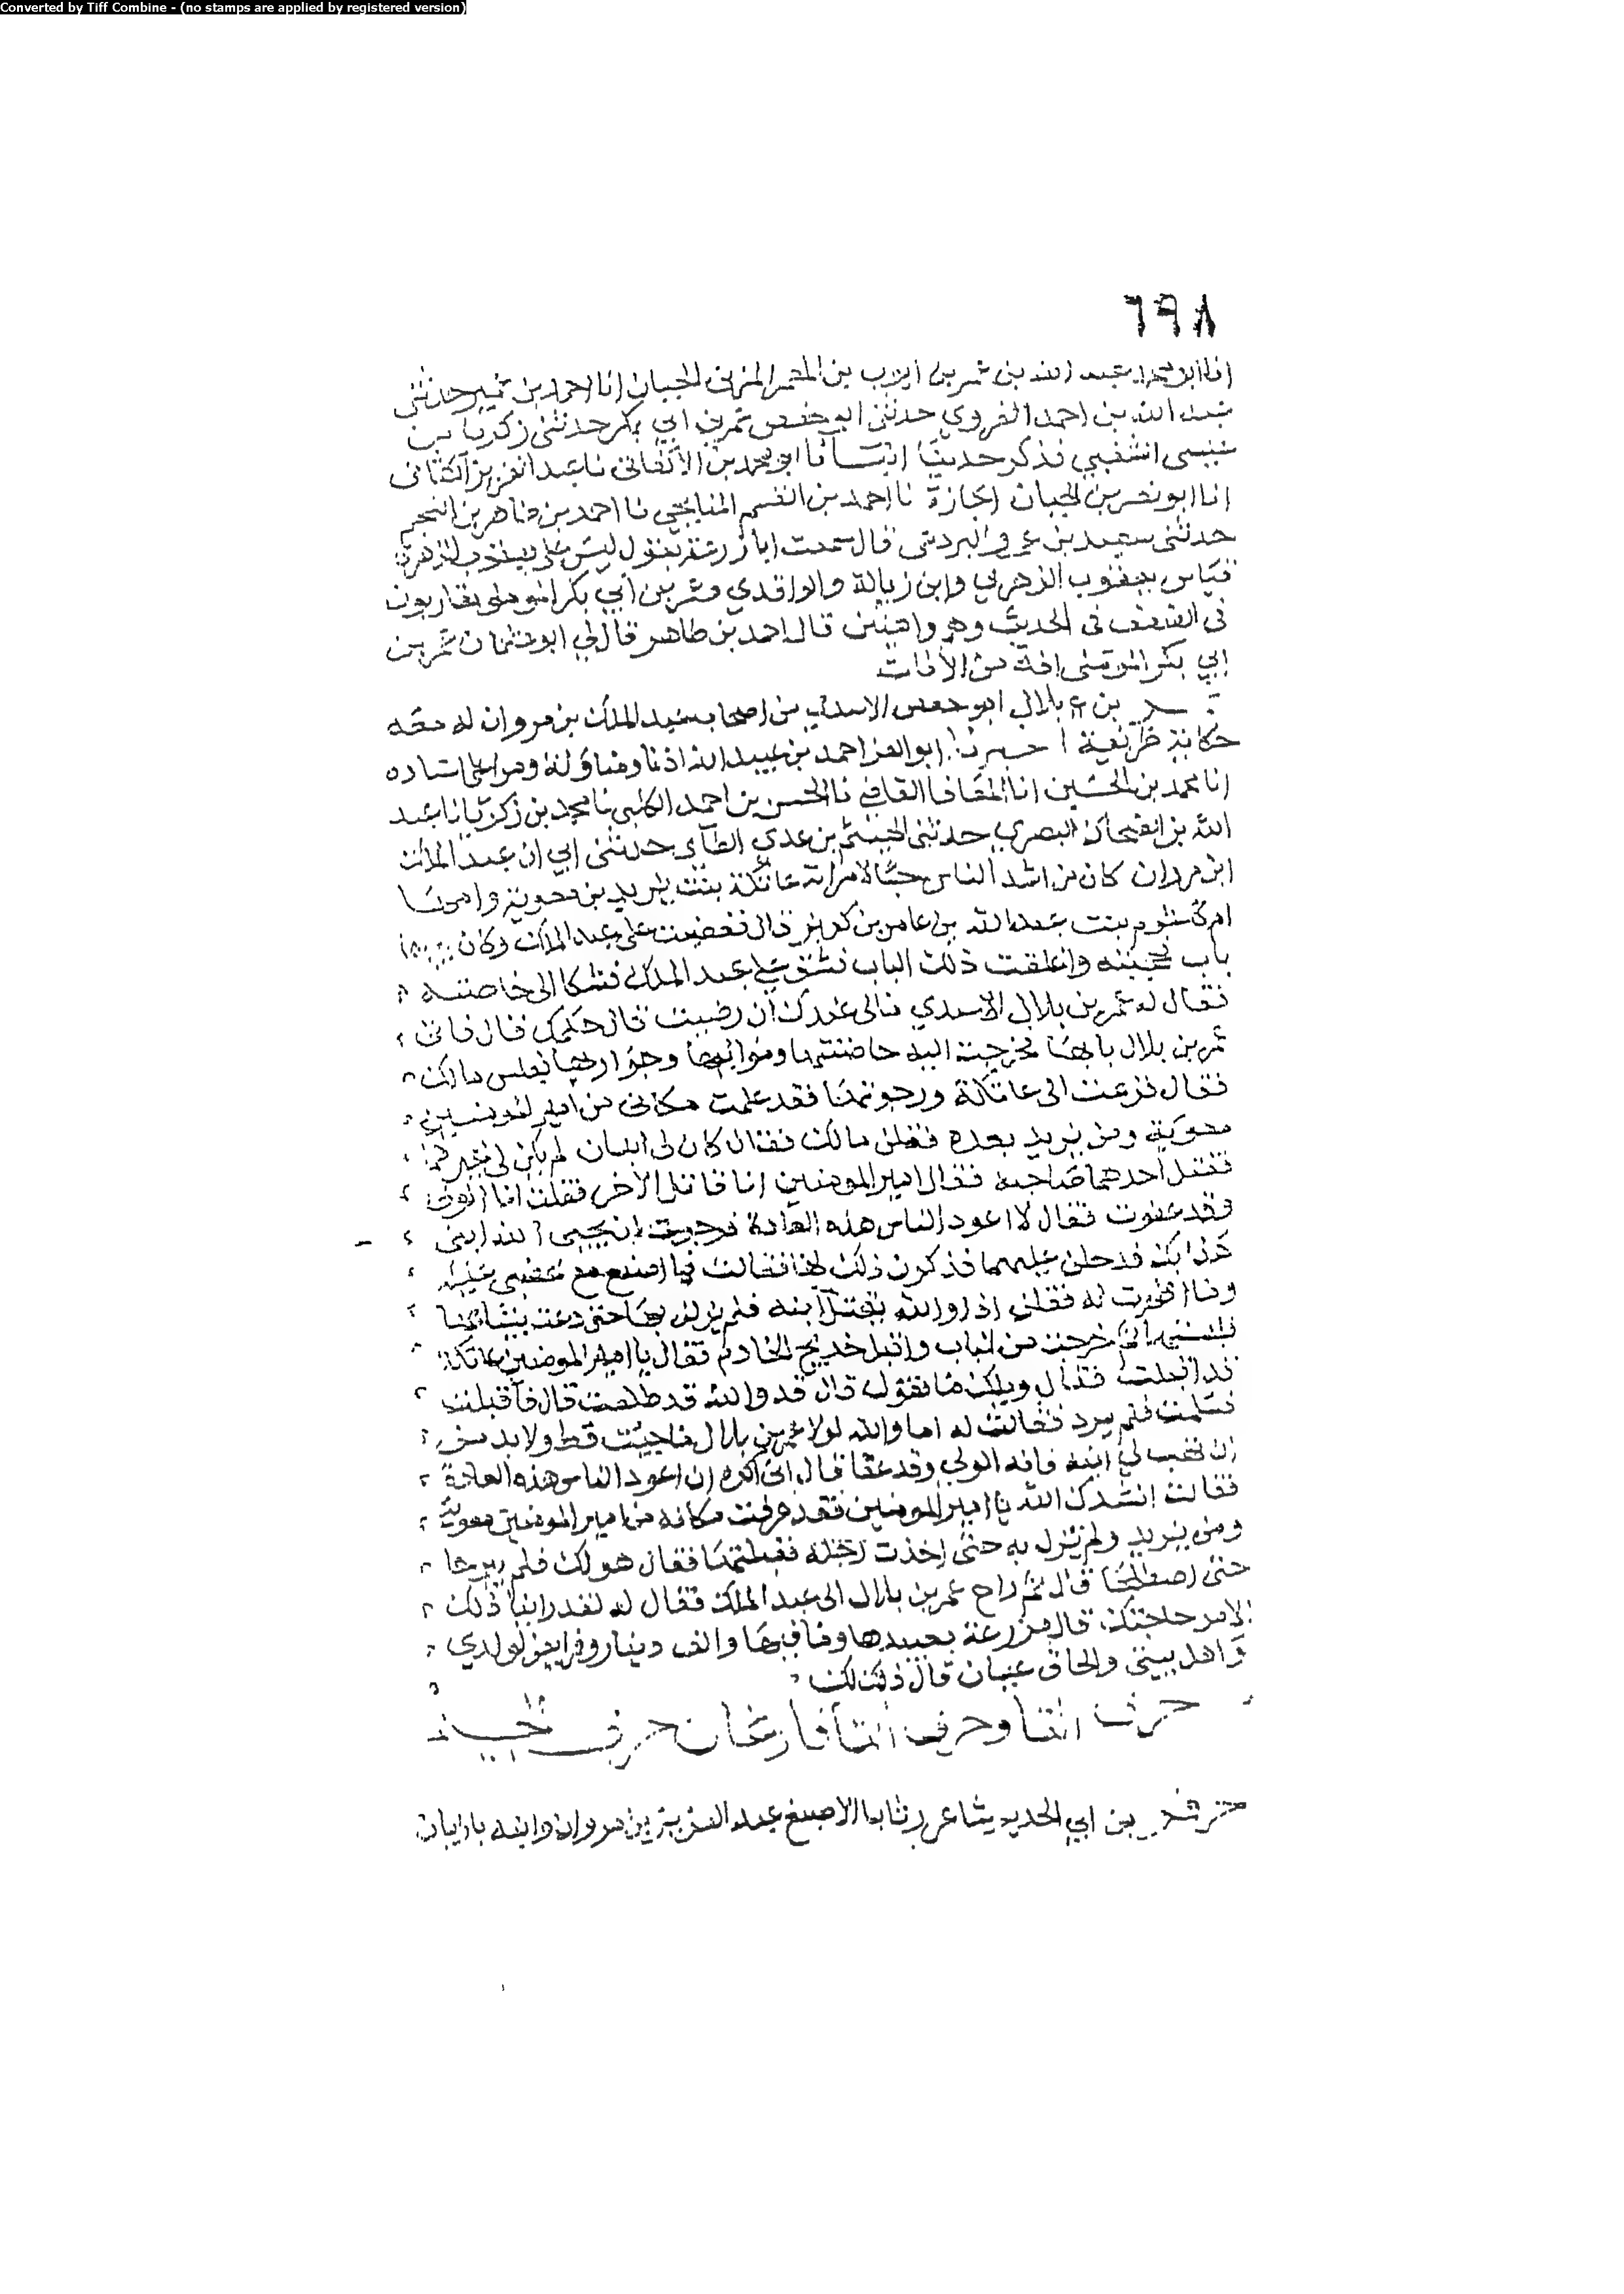 Converted by Tiff Combine - (no stamps are applied by registered version)
٦٩٨
انا ابو محمد عبد الله بن عمر بن ايوب بن المعمر المزنى الجبان انا احمد بن عمير حدثنى
عبد الله بن احمد الفروي حدثنى ابو حفص عمر بن ابي بكر حدثنى زكريا بن
عيسى الشغبي فذكر حديثا انبأنا ابو محمد بن الاكفانى نا عبد العزيز الكتانى
انا ابو نصر بن الجبان اجازة نا احمد بن القسم الميانجي نا احمد بن طاهر بن النجم
حدثنى سعيد بن عمرو البردعى قال سمعت ابا زرعة يقول ليس على يعقوب الزهري
قياس يعقوب الزهري وابن زبالة والواقدي وعمر بن ابي بكر الموملى يقاربون
فى الضعف فى الحديث وهم واهيين قال احمد بن طاهر قال لي ابو عثمان عمر بن
ابي بكر الموملى افة من الافات
بن بلال ابو حفص الاسدي من اصحاب عبد الملك بن مروان له معه
حكاية ظريفة اخبرنا ابو العز احمد بن عبيد الله اذنا ومناولة وقرا علي اسناده
انا محمد بن الحسين انا المعافا القاضي نا الحسن بن احمد الكلبي نا محمد بن زكريا نا عبد
الله بن الضحاك البصري حدثنى الهيثم بن عدي الطآى حدثنى ابي ان عبد الملك
ابن مروان كان من اشد الناس حبا لامراته عاتكة بنت يزيد بن معوية وامها
ام كلثوم بنت عبد الله بن عامر بن كريز قال فغضبت على عبد الملك وكان
باب محجبه واغلقت ذلك الباب فشق على عبد الملك فشكا الى خاصته
فقال له عمر بن بلال الاسدي مالى عندك ان رضيت قال حكمك قال فاتى
عمر بن بلال بابها فخرجت اليه حاضنتها ومواليها وجواريها فقلن مالك
فقال فزعت الى عاتكة ورجوتها فقد علمت مكانى من امير المومنين
معوية ومن يزيد بعده فقلن مالك فقال كان لى ابنان لم يكن لى غيرهما
فقتل احدهما صاحبه فقال امير المومنين انا قاتل الاخر فقلت انا الولى
وقد عفوت فقال لا اعود الناس هذه العادة فرجوت ان يحيي الله ابنى
هذا بك فدخلن عليها فذكرن ذلك لها فقالت فما اصنع مع غضبى عليه
وما اظهرت له فقلن اذا والله يقتل ابنه فلم يزلن بها حتى دعت بثيابها
فلبستها ثم خرجت من الباب واقبل خديج الخادم فقال يا امير المومنين عاتكة
قد اقبلت فقال ويلك ما تقول قال قد والله قد طلعت قال فاقبلت
فسلمت فلم يرد فقالت له اما والله لولا عمر بن بلال ما جيت قط ولا بد من
ان تهب لي ابنه فانه الولي وقد عفا قال انى اكره ان اعود الناس هذه العادة
فقالت انشدك الله يا امير المومنين فقد عرفت مكانه من امير المومنين معوية
ومن يزيد ولم تزل به حتى اخذت رجله فقبلتها فقال هو لك فلم يبرحا
حتى اصطلحا قال ثم راح عمر بن بلال الى عبد الملك فقال له لقد راينا ذلك
الامر حاجتك قال مزرعة بعبيدها وما فيها والف دينار وفرايض لولدي
واهل بيتى والحاق عيال قال ذلك لك
حرف الثا وحرف الثا فارغان حرف الجيم
بن ابي الحديد شاعر رثا ابا الاصبغ عبد العزيز بن مروان وابنه بابيات